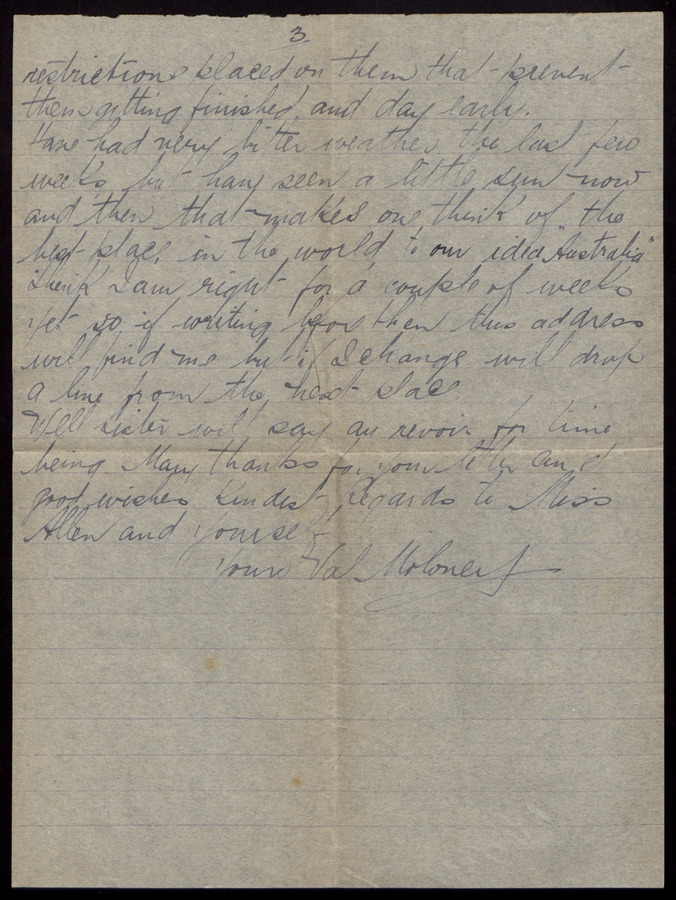 3.
restrictions placed on them that prevent
them getting finished and day early.
Have had very bitter weather the last few
weeks but have seen a little sun now
and then that makes one think of the
best place in the world to our idea "Australia"
think I am right for a couple of weeks
yet so if writing before then this address
will find me but if I change will drop
a line from the next place.
Well sister will say au revoir for time
being Many thanks for your letter and
good wishes Kindest Regards to Miss
Allen and yourself
Yours Val Moloney